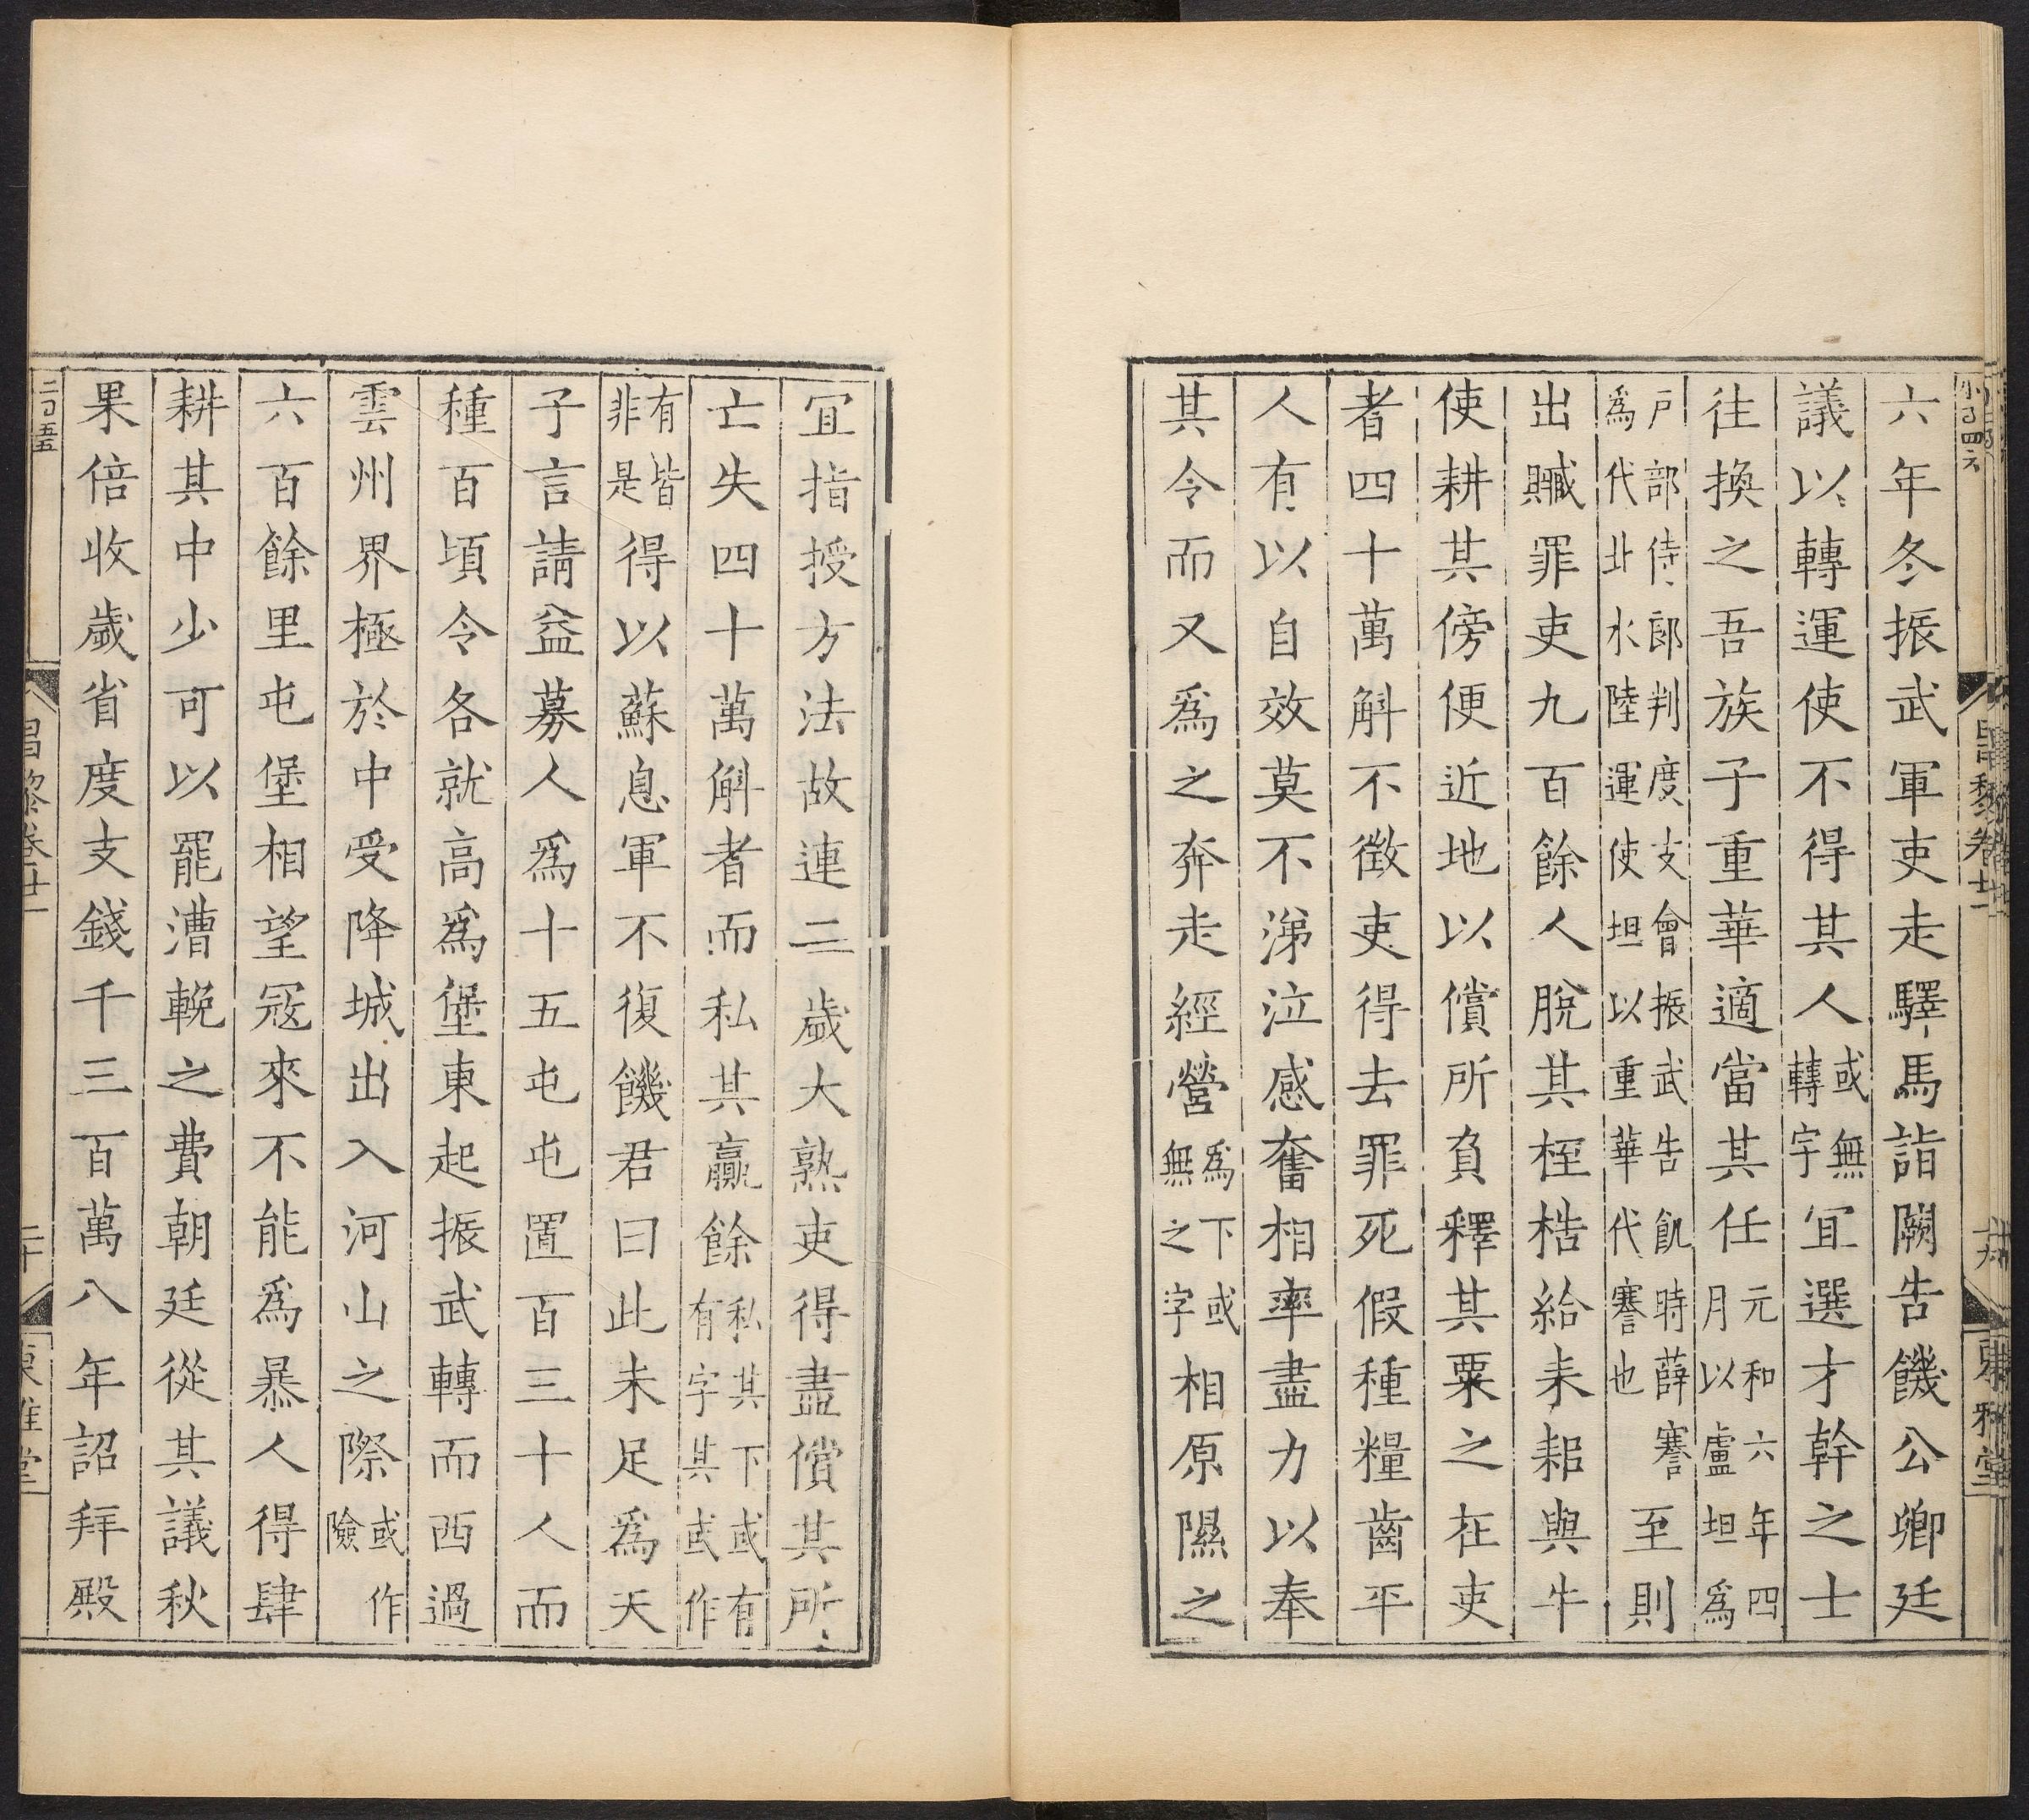 六年冬振武軍吏走驛馬詣闕告饑公卿廷
議以轉運使不得其人或無轉字宜選才幹之士
往換之吾族子重華適當其任元和六年四月以盧坦為
戶部侍郎判度支會振武告飢時薛謇為代北水陸運使坦以重華代謇也至則
出贓罪吏九百餘人脫其桎梏給耒耜與牛
使耕其傍便近地以償所負釋其粟之在吏
者四十萬斛不徵吏得去罪死假種糧齒平
人有以自效莫不涕泣感奮相率盡力以奉
其令而又爲之奔走經營爲下或無之字相原隰之
昌黎卷廿一
十九
東雅堂
宜指授方法故連二歲大熟吏得盡償其所
亡失四十萬斛者而私其贏餘私其下或有有字其或作
有皆非是得以蘇息軍不復饑君曰此未足爲天
子言請益募人爲十五屯屯置百三十人而
種百頃令各就高爲堡東起振武轉而西過
雲州界極於中受降城出入河山之際或作險
六百餘里屯堡相望寇來不能爲暴人得肆
耕其中少可以罷漕輓之費朝廷從其議秋
果倍收歲省度支錢千三百萬八年詔拜殿
昌黎卷廿一
二十
東雅堂